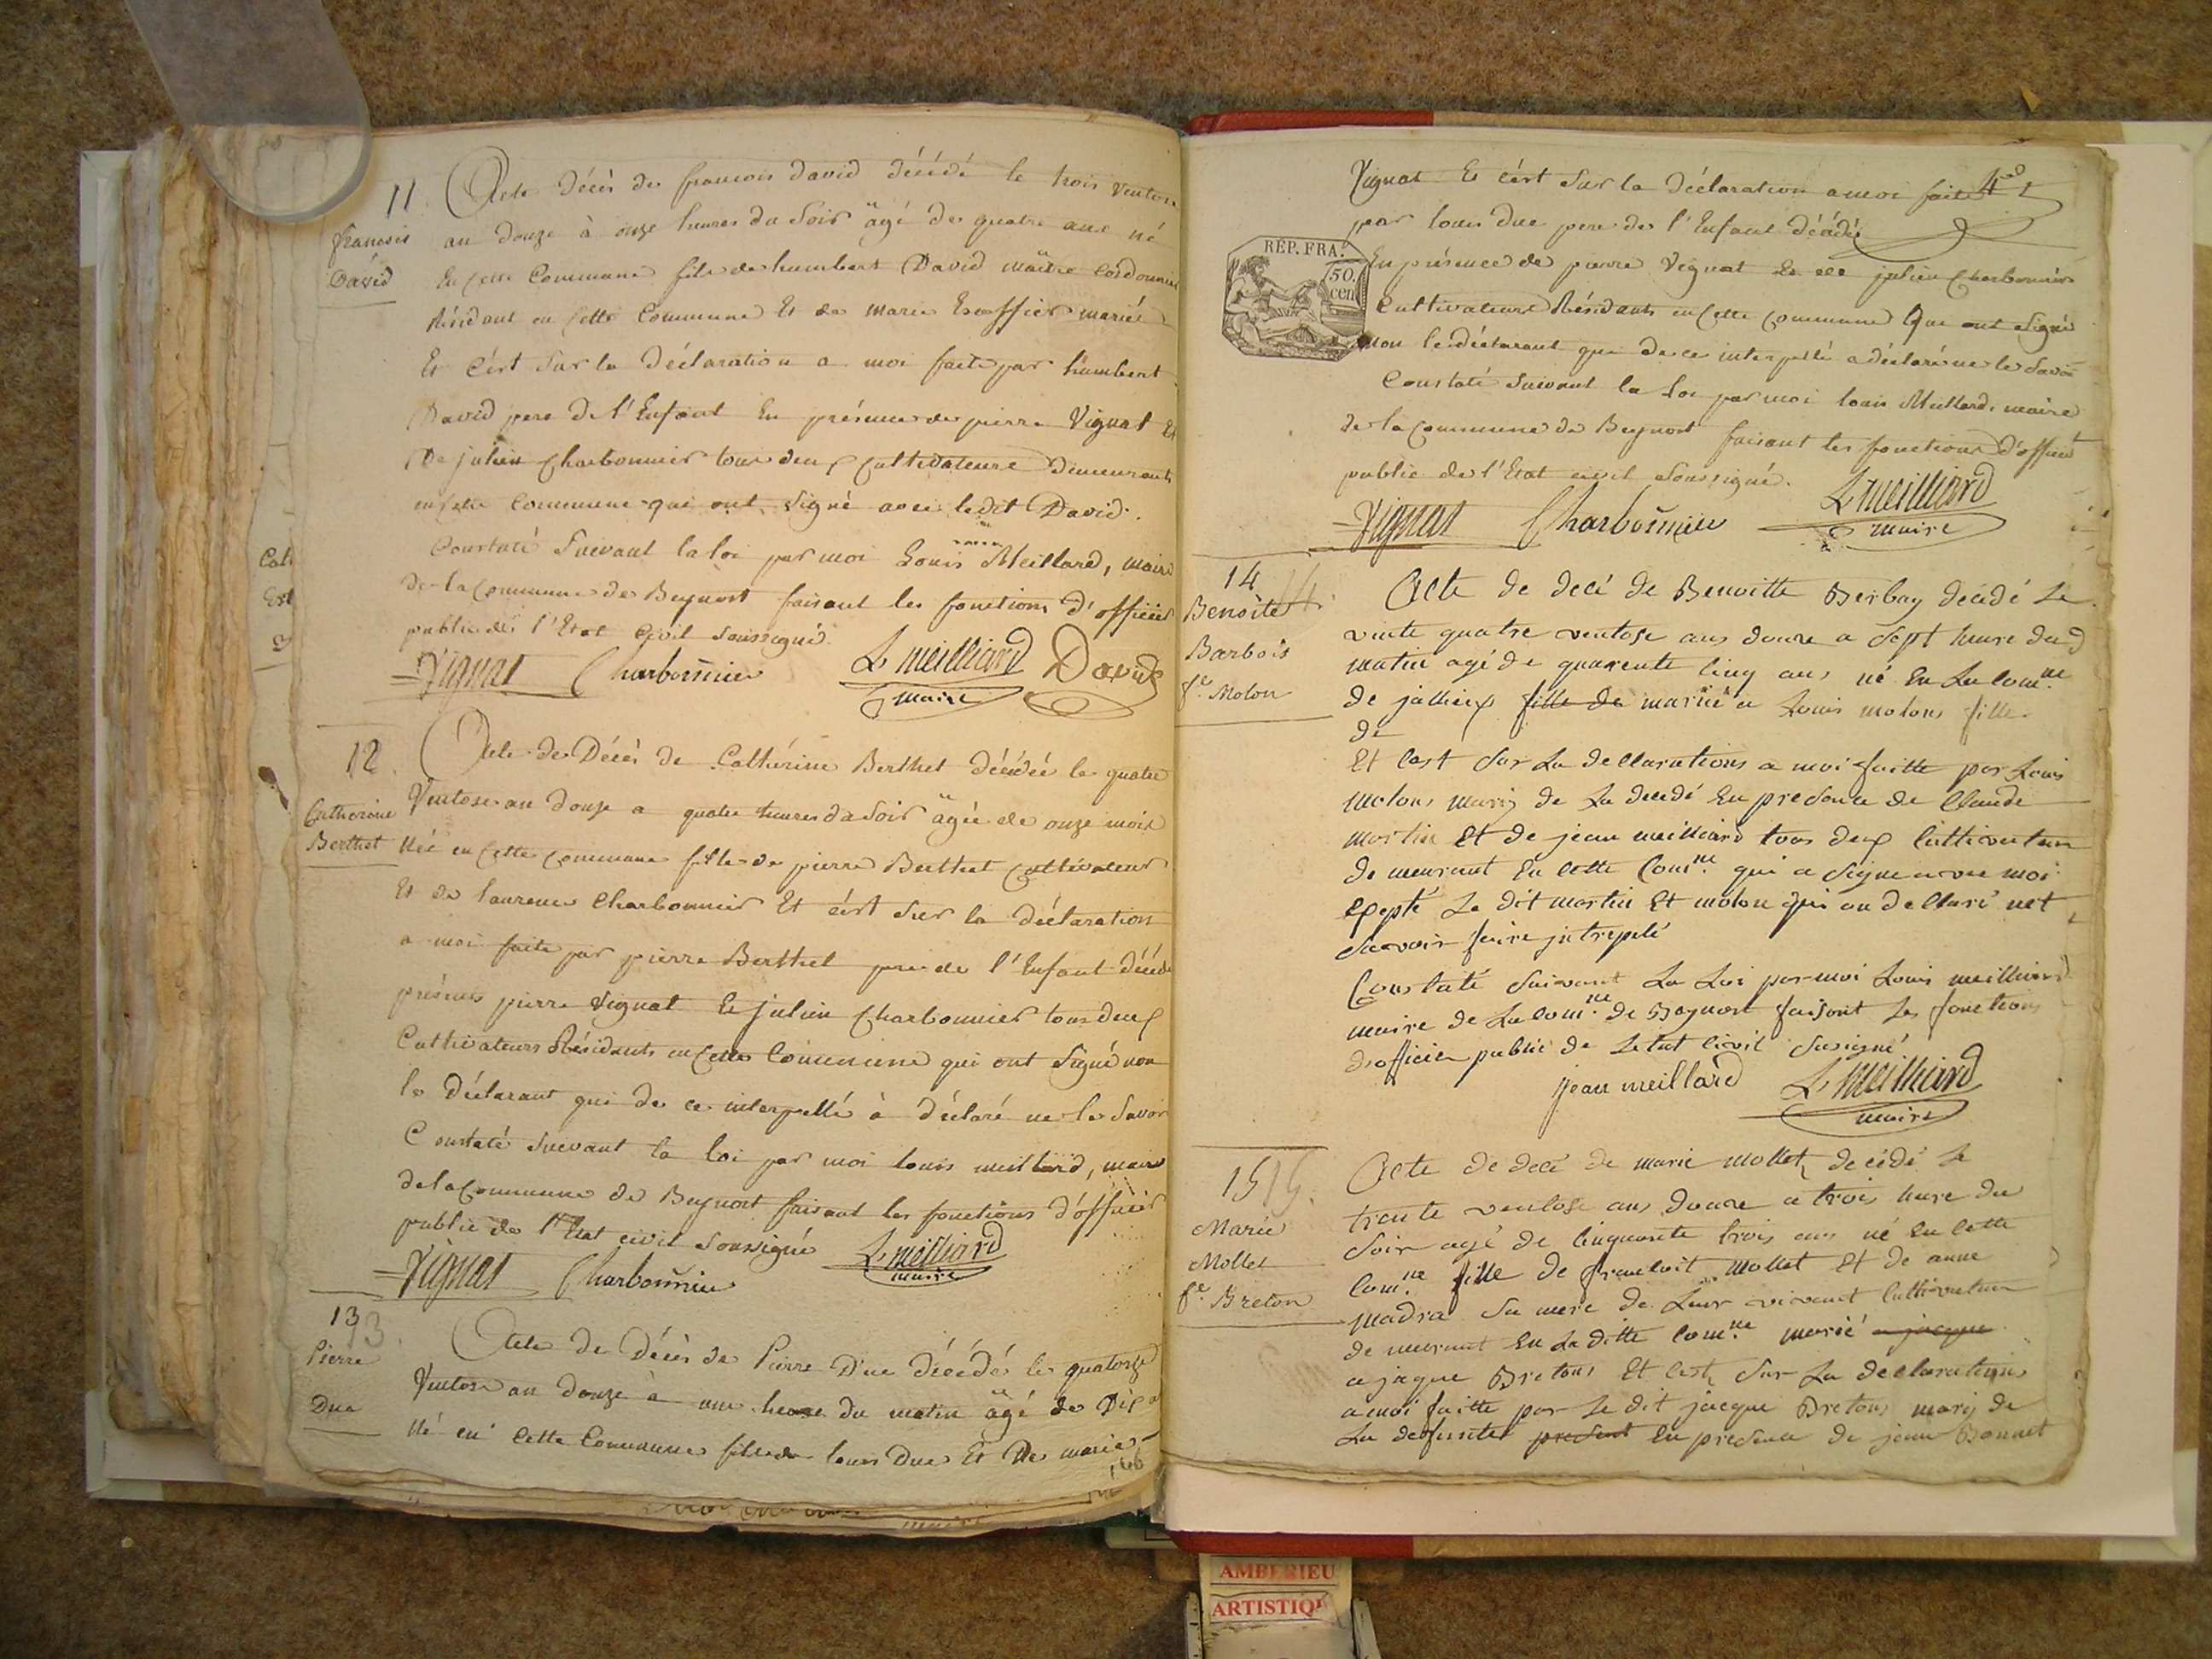 11. Acte Décès de francois David décédé le trois Ventose
an douze à onze heures du Soir âgé de quatre ans né
françois
David
En cette Commune fils de humbert David maître Cordonnier
Résidant en cette Commune Et de marie Escoffier mariés
Et C'ést Sur la Déclaration a moi faite par humbert
David pere De l'Enfant En présence de pierre Vignat Et
De julien Charbonnier tous deux Cultivateurs Demeurants
en cette Commune qui ont Signé avec ledit David.
Constaté Suivant la loi par moi Louis Meillard, maire
de la Commune de Beynost faisant les fonctions d'officier
public de l'Etat Civil Soussigné.
Vignat Charbonnier L meilliard David
maire
12. Acte de Décès de Cathérine Berthet décédée le quatre
Ventose an douze a quatre heures du Soir âgée de onze mois
Catherine
Berthet
Née en cette Commune fille de pierre Berthet Cultivateur
Et de laurence Charbonnier Et c'ést Sur la Déclaration
a moi faite par pierre Berthet pere de l'Enfant décédé
présents pierre Vignat Et julien Charbonnier tous deux
Cultivateurs Résidants en cette Commune qui ont Signé non
le Déclarant qui de ce interpellé à déclaré ne le Savoir
Constaté Suivant la loi par moi louis meillard, maire
de la Commune de Beynost faisant les fonctions d'officier
public de l'Etat civil Soussigné
Vignat Charbonnier L meilliard
maire
13 13.
Pierre
Duc
Acte de Décès de Pierre Duc décédé le quatorze
Ventose an douze à une heure du matin âgé de Dix
Né en cette Commune fils de louis Duc Et De marie
Vignat Et c'ést Sur la Déclaration a moi faite
par louis Duc pere de l'Enfant décédé
RÉP. FRA.
50.
cen
En présence de pierre Vignat Et de julien Charbonnier
Cultivateurs Résidants en cette Commune Qui ont Signé
non le déclarant qui de ce interpellé a déclaré ne le Savoir
Constaté Suivant la Loi par moi louis Meillard, maire
de la Commune de Beynost faisant les fonctions d'officier
public de l'Etat civil Soussigné.
Vignat Charbonnier L meilliard
maire
14 14.
Benoite
Barbois
fe. Molon
Acte de decé de Benoitte Berbay décédé Le
vinte quatre ventose ans douze a Sept heure du
matin agé de quarente Cinq ans né En La Comne.
de jallieux fille de marié a Louis molons fille
de
Et Cest Sur La declarations a moi faitte par Louis
molons mary de La decedé En presence de Claude
martin Et de jean meilliard tous deux Cultivateur
de meurant En Cette Comne. qui a Signe avec moi
Exepté Le dit martin Et molon qui on dellaré net
Savoir faire jntrepelé
Constaté Suivant La Loi par moi Louis meilliard
maire de La Comne. de Beynost faisont Les fonctions
d'officier public de Letat Civil Susigné
jean meillard L meilliard
maire
15 15.
Marie
Mollet
fe. Breton
Acte de decé de marie mollet decédé Le
trente ventose ans douze a trois hure du
Soir agé de Cinquante trois ans né En Cette
Comne. fille de francoit mollet Et de anne
madra Sa mere de Leur vivant Cultivateur
de meurant En La ditte Comne. marié a jacque
a jaque Bretons Et Cest Sur La declarations
a moi faitte par Le dit jacque Bretons mary de
La defunte present En presence de jean Bonnet
AMBERIEU
ARTISTIQU